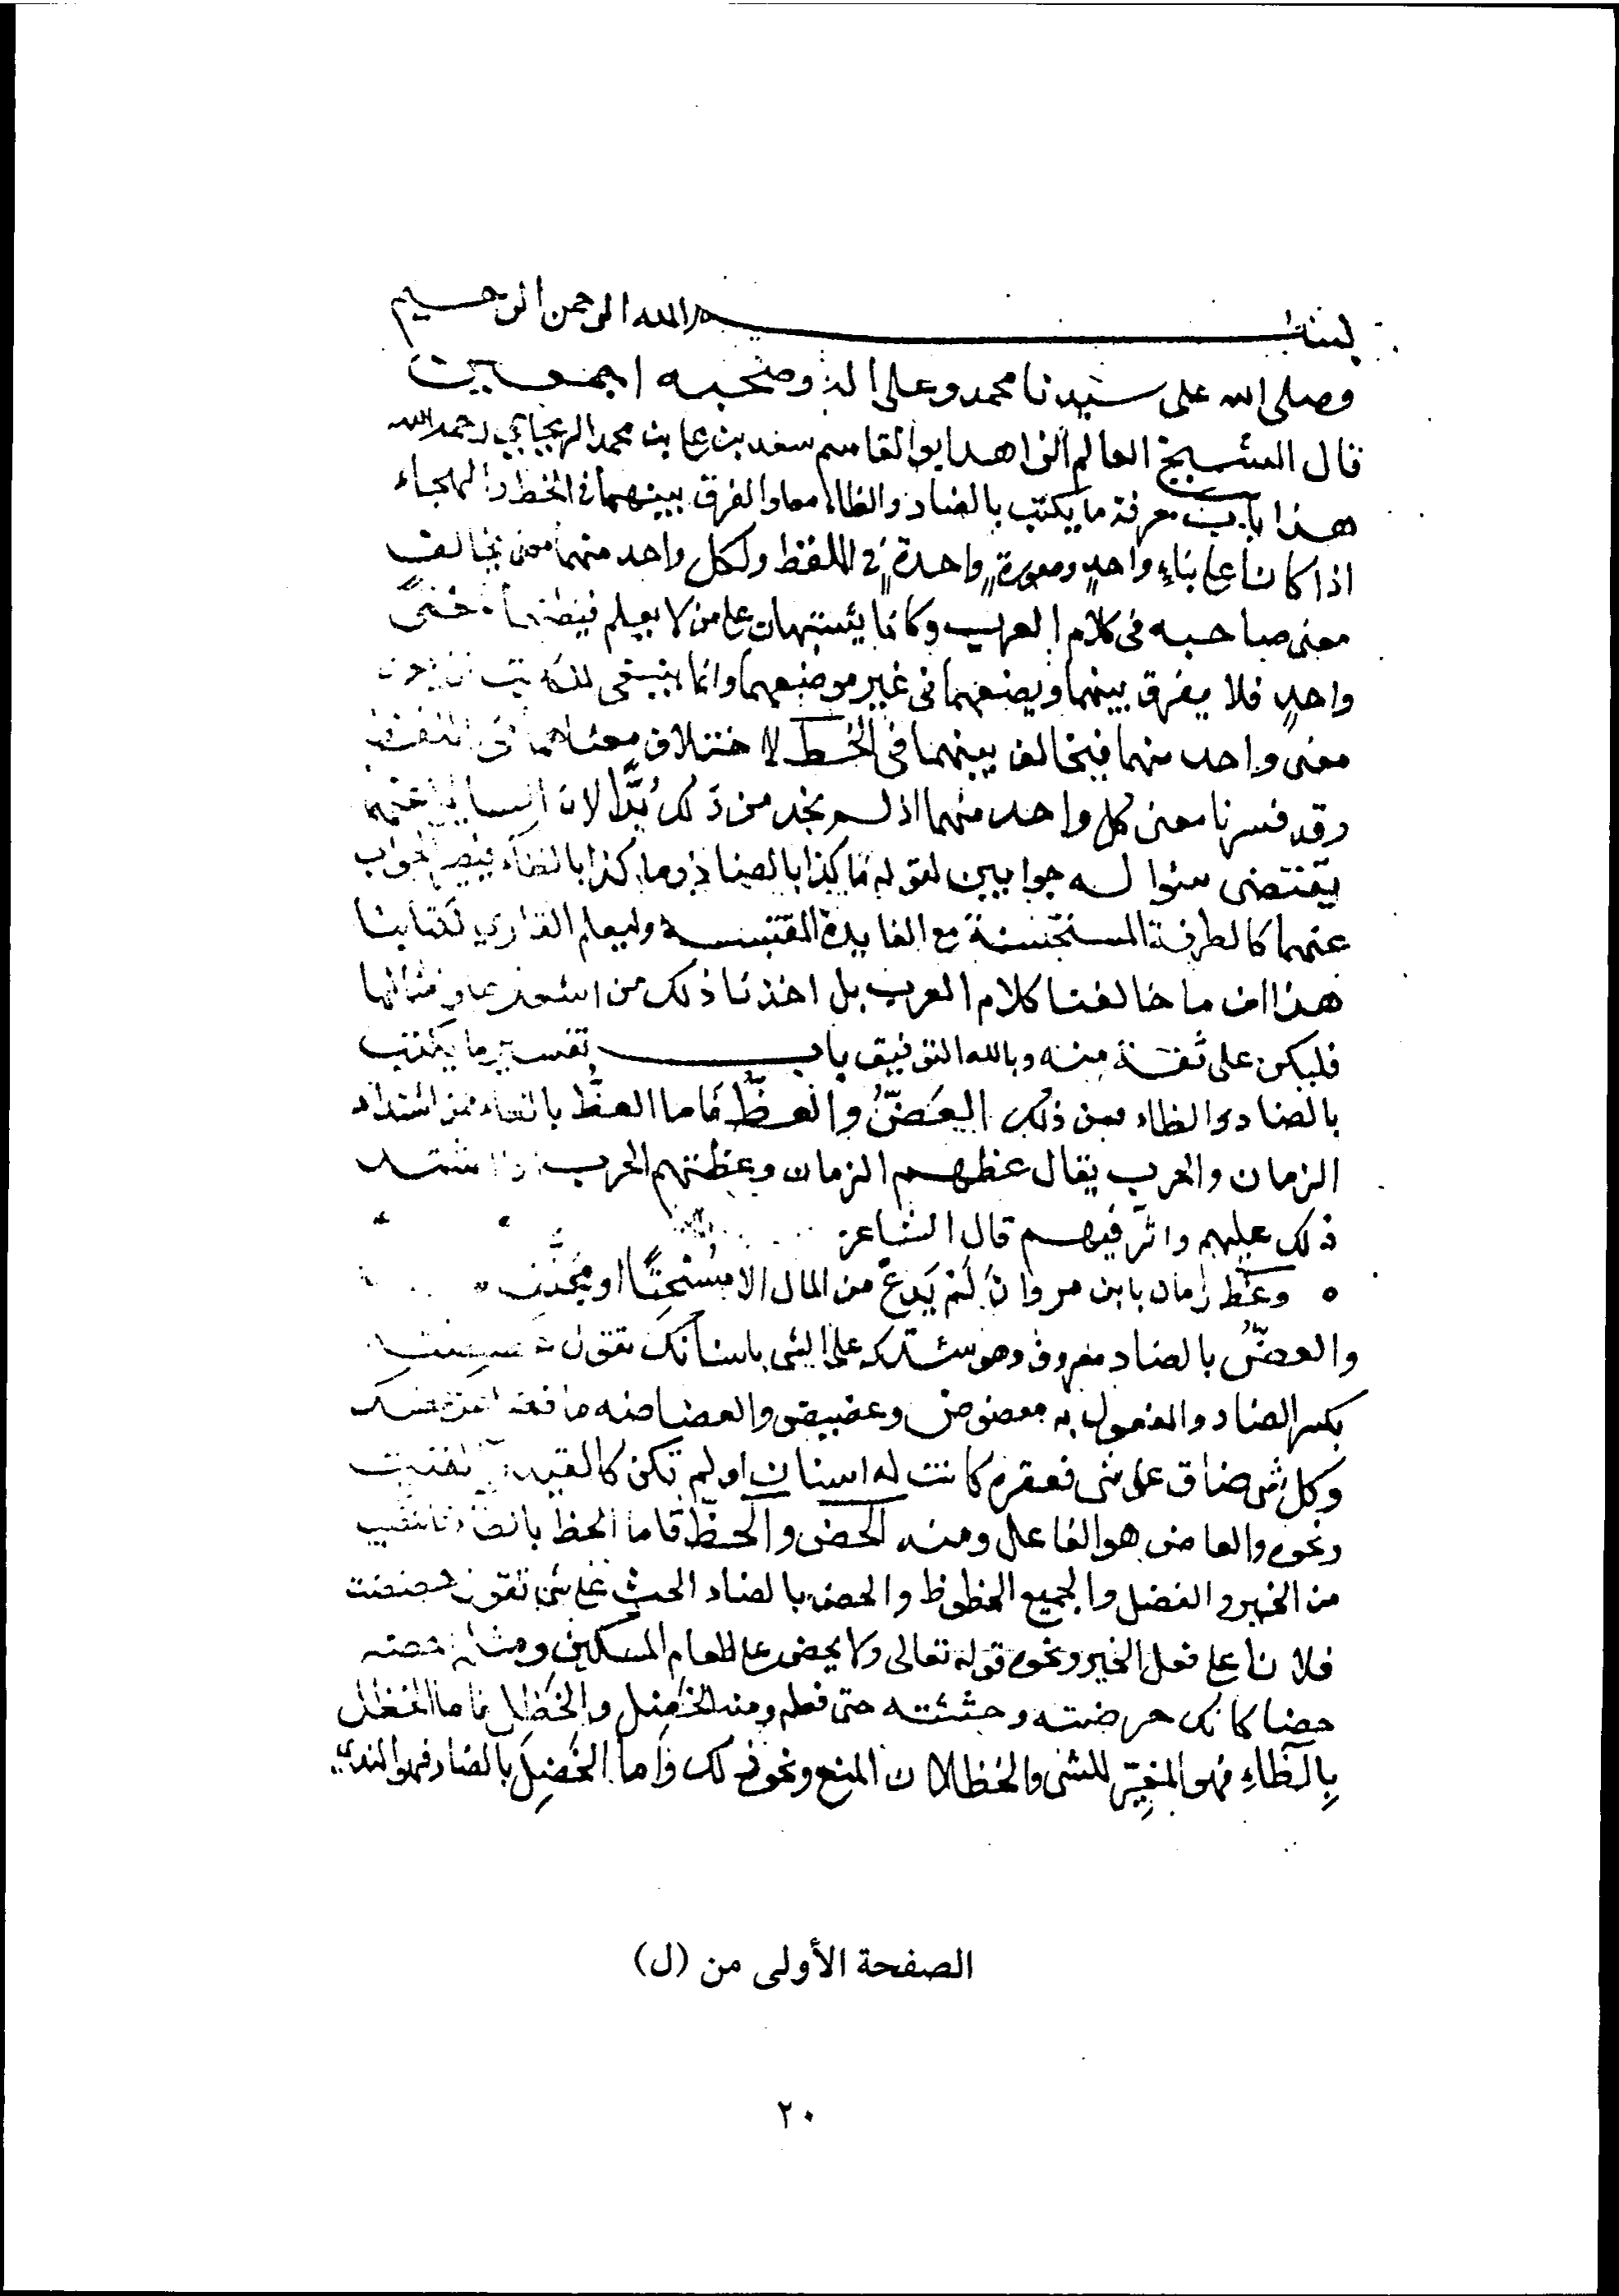 بسم الله الرحمن الرحيم
وصلى الله على سيدنا محمد وعلى اله وصحبه اجمعين
قال الشيخ العالم الزاهد ابو القاسم سعد بن على بن محمد الزنجاني رحمه الله
هذا باب معرفة ما يكتب بالضاد والظاء معا والفرق بينهما في الخط والهجاء
اذا كانا على بناء واحد وصورة واحدة في اللفظ ولكل واحد منهما معنى يخالف
معنى صاحبه في كلام العرب وكانا يشتبهان على من لا يعلم فيظنهما معنى
واحد فلا يفرق بينهما ويضعهما في غير موضعهما وانما ينبغي
معنى واحد منهما فيخالف بينهما في الخط لاختلاف معناهما في اللفظ
وقد فسرنا معنى كل واحد منهما اذ لم نجد من ذلك بدا لان السايل عنهما
يقتضى سؤاله جوابين لقوله ما كذا بالضاد وما كذا بالظاء فيصير الجواب
عنهما كالطرفة المستحسنة مع الفايدة المقتبسة وليعلم القاري لكتابنا
هذا انا ما خالفنا كلام العرب بل اخذنا ذلك من اشعارها وامثالها
فليكن على ثقة منه وبالله التوفيق باب تفسير ما يكتب
بالضاد والظاء فمن ذلك العض والعظ فاما العظ بالظاء فمن اشتداد
الزمان والحرب يقال عظهم الزمان وعظتهم الحرب اذا اشتد
ذلك عليهم واثر فيهم قال الشاعر
وعظ زمان يا بن مروان لم يدع من المال الا مسحتا او مجلف
والعض بالضاد معروف وهو شدك على الشى باسنانك تقول عضضت
بكسر الضاد والمفعول به معضوض وعضيض والعضاضه
وكل شى ضاق على شى فعقره كانت له اسنان او لم تكن كالقيد
ونحوه والعاض هو الفاعل ومنه الحض والحظ فاما الحظ بالظاء فالنصيب
من الخير والفضل والجميع الحظوظ والحض بالضاد الحث على شى تقول حضضت
فلانا على فعل الخير ونحوه قوله تعالى ولا يحض على طعام المسكين ومثله حضته
حضا كانك حرضته وحثثته حتى فعله ومنه الخضل والخظل فاما الخظل
بالظاء فهو المغير للشى والخظلان المنع ونحو ذلك واما الخضل بالضاد فهو الندي
الصفحة الأولى من (ل)
٢٠